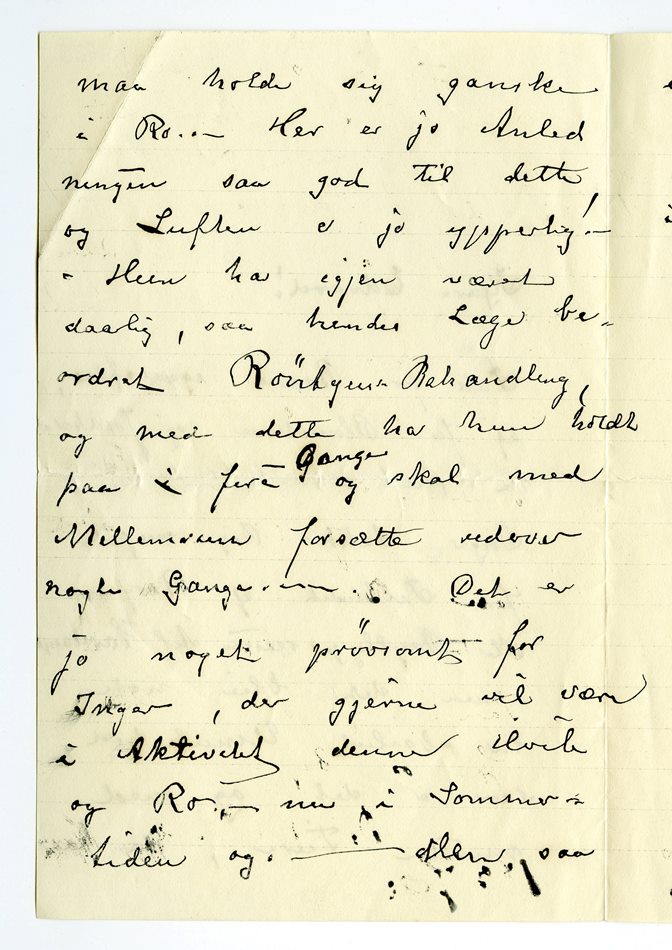 maa holde sig ganske
i Ro. — Her er jo Anled
ningen saa god til dette
og Luften er jo ypperlig! —
- Hun har igjen været
daarlig, saa hendes Læge be-
ordret Röntgen-Behandling,
og med dette har hun holdt
paa i fire Gange og skal med
Mellemrum forsætte udover
nogle Gange. — . Det er
jo noget prövsomt for
Inger, der gjerne vil være
i Aktivitet denne Hvile
og Ro. — nu i Sommer-
tiden og. — Men saa